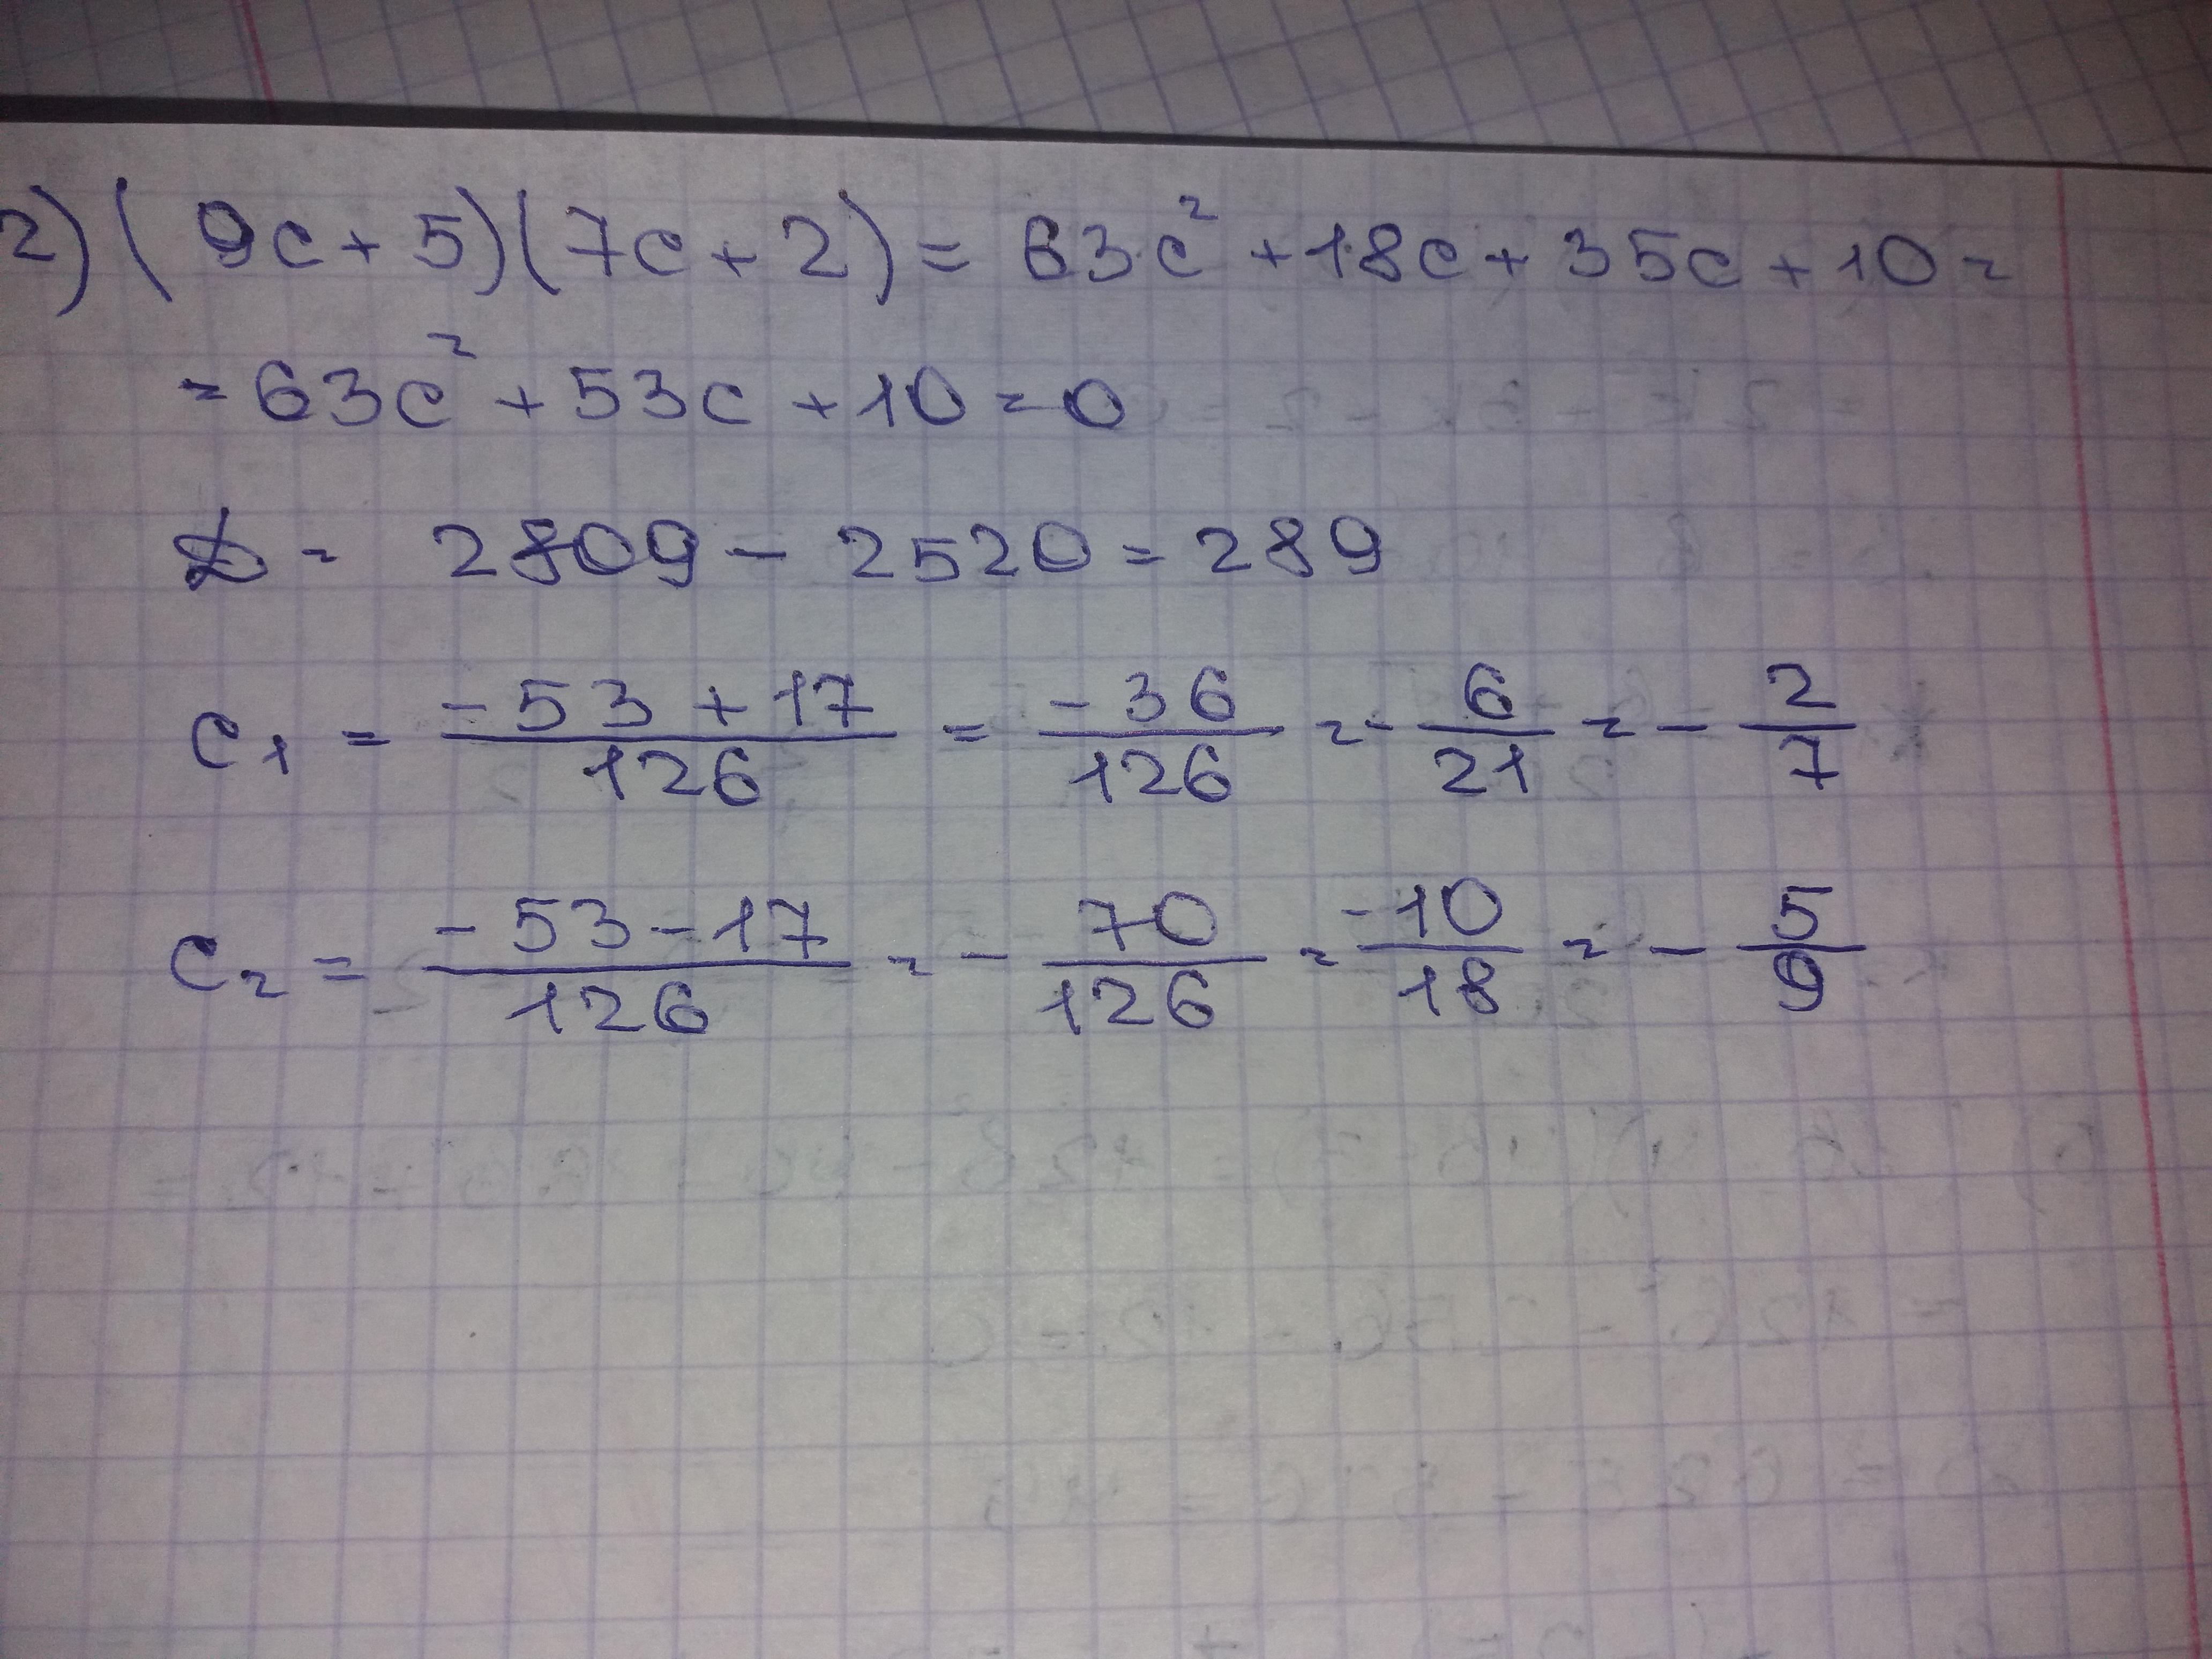 2) (9c + 5)(7c + 2) = 63c² + 18c + 35c + 10 =
= 63c² + 53c + 10 = 0
D = 2809 - 2520 = 289
c₁ = (-53 + 17)/126 = -36/126 = - 6/21 = - 2/7
c₂ = (-53 - 17)/126 = - 70/126 = -10/18 = - 5/9